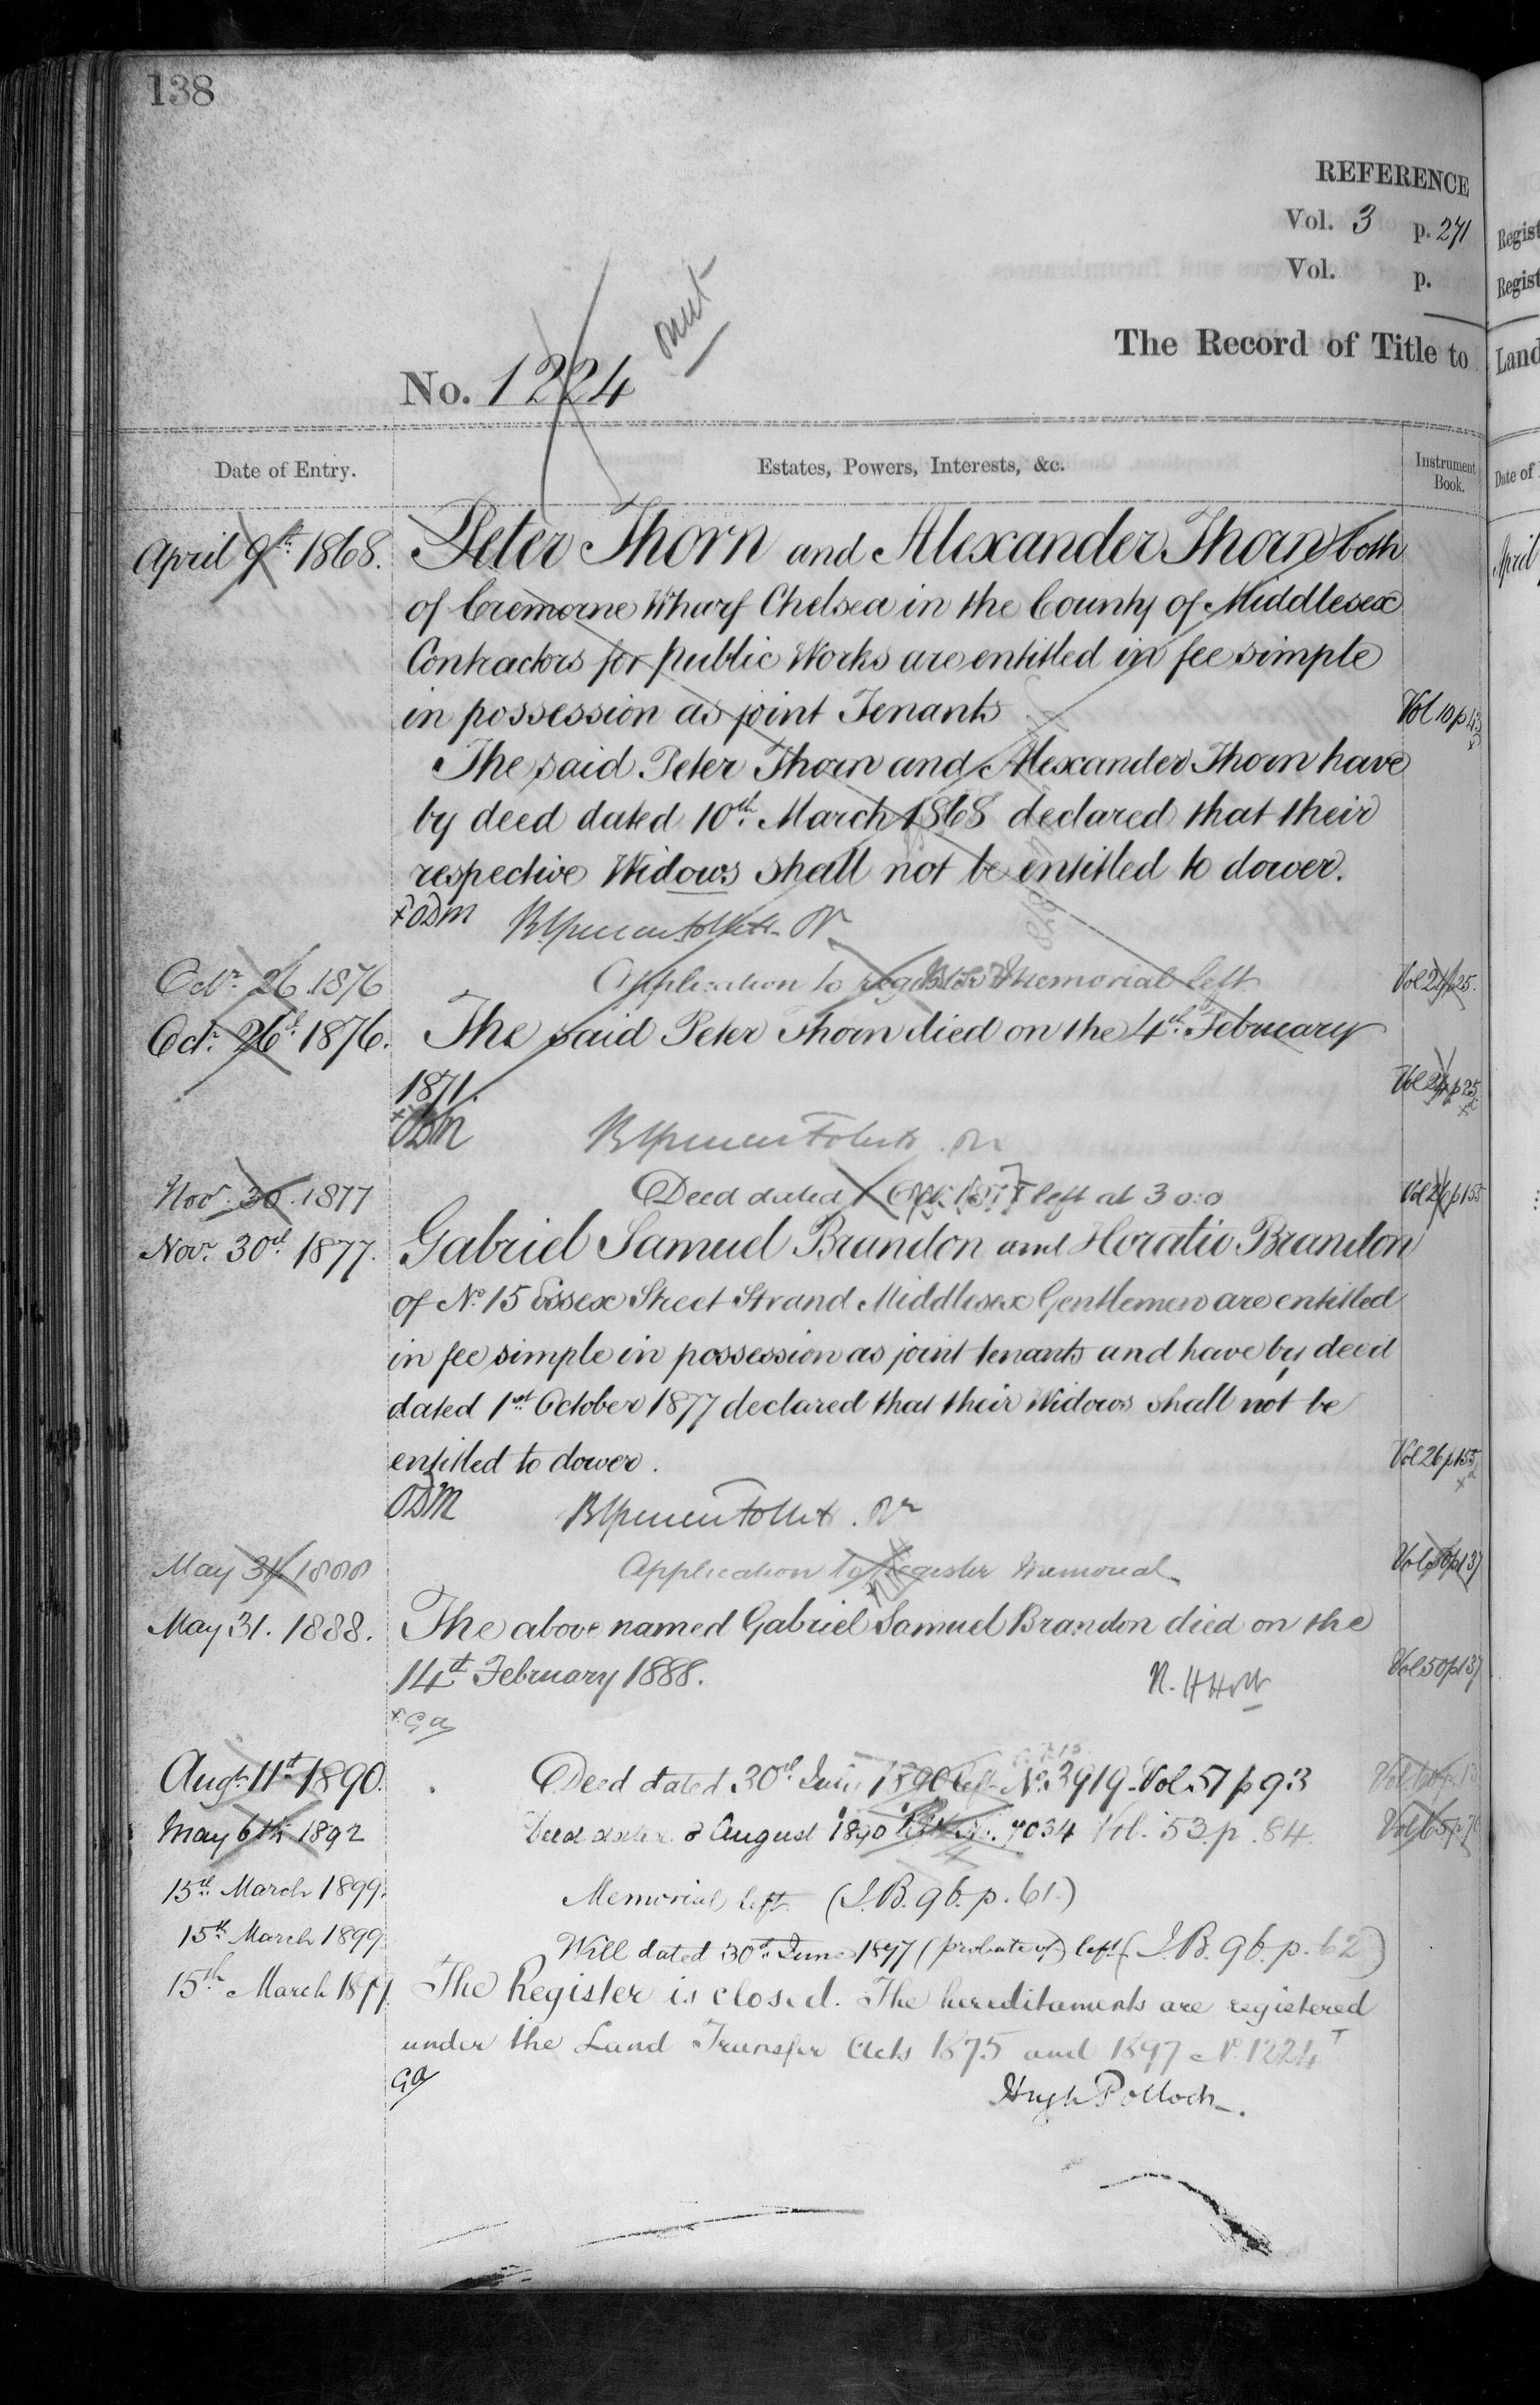 138
REFERENCE
Vol. 3 p. 271
Vol. p.
The Record of Title to
No. 1224 omit
Date of Entry. Estates, Powers, Interests, &c. Instrument Book.
April 9th 1868. Peter Thorn and Alexander Thorn both
of Cremorne Wharf Chelsea in the County of Middlesex
Contractors for public Works are entitled in fee simple
in possession as joint Tenants Vol 10 p
The said Peter Thorn and Alexander Thorn have
by deed dated 10th March 1868 declared that their
respective Widows shall not be entitled to dower.
ODM
Octr 26 1876 Application to register Memorial left Vol 24 p 25.
Oct. 26th 1876. The said Peter Thorn died on the 4th February
1871. Vol 24 p 25
ODM
Novr 30. 1877 Deed dated 1 Oct. 1877 left at 3 o.o Vol 26 p 155
Novr 30th 1877. Gabriel Samuel Brandon and Horatio Brandon
of No 15 Essex Street Strand Middlesex Gentlemen are entitled
in fee simple in possession as joint tenants and have by deed
dated 1st October 1877 declared that their Widows shall not be
entitled to dower. Vol 26 p 155
ODM
May 31 1888 Application to Register Memorial Vol 50 p 137
May 31. 1888. The above named Gabriel Samuel Brandon died on the
14th February 1888. Vol 50 p 137
GA
Augt 11th 1890. Deed dated 30th 1890 left No. 3919 Vol 57 p 93
May 6th 1892 Deed dated 8 August 1890 left No. 7034 Vol. 53 p. 84
15th March 1899. Memorial left (I.B. 96. p. 61.)
15th March 1899 Will dated 30th June 1897 (probate of) left (I.B. 96. p. 62)
15th March 1899 The Register is closed. The hereditaments are registered
under the Land Transfer Acts 1875 and 1897 No. 1224T
GA
Hugh Pollock
Regist
Regist
Land
Date of
April